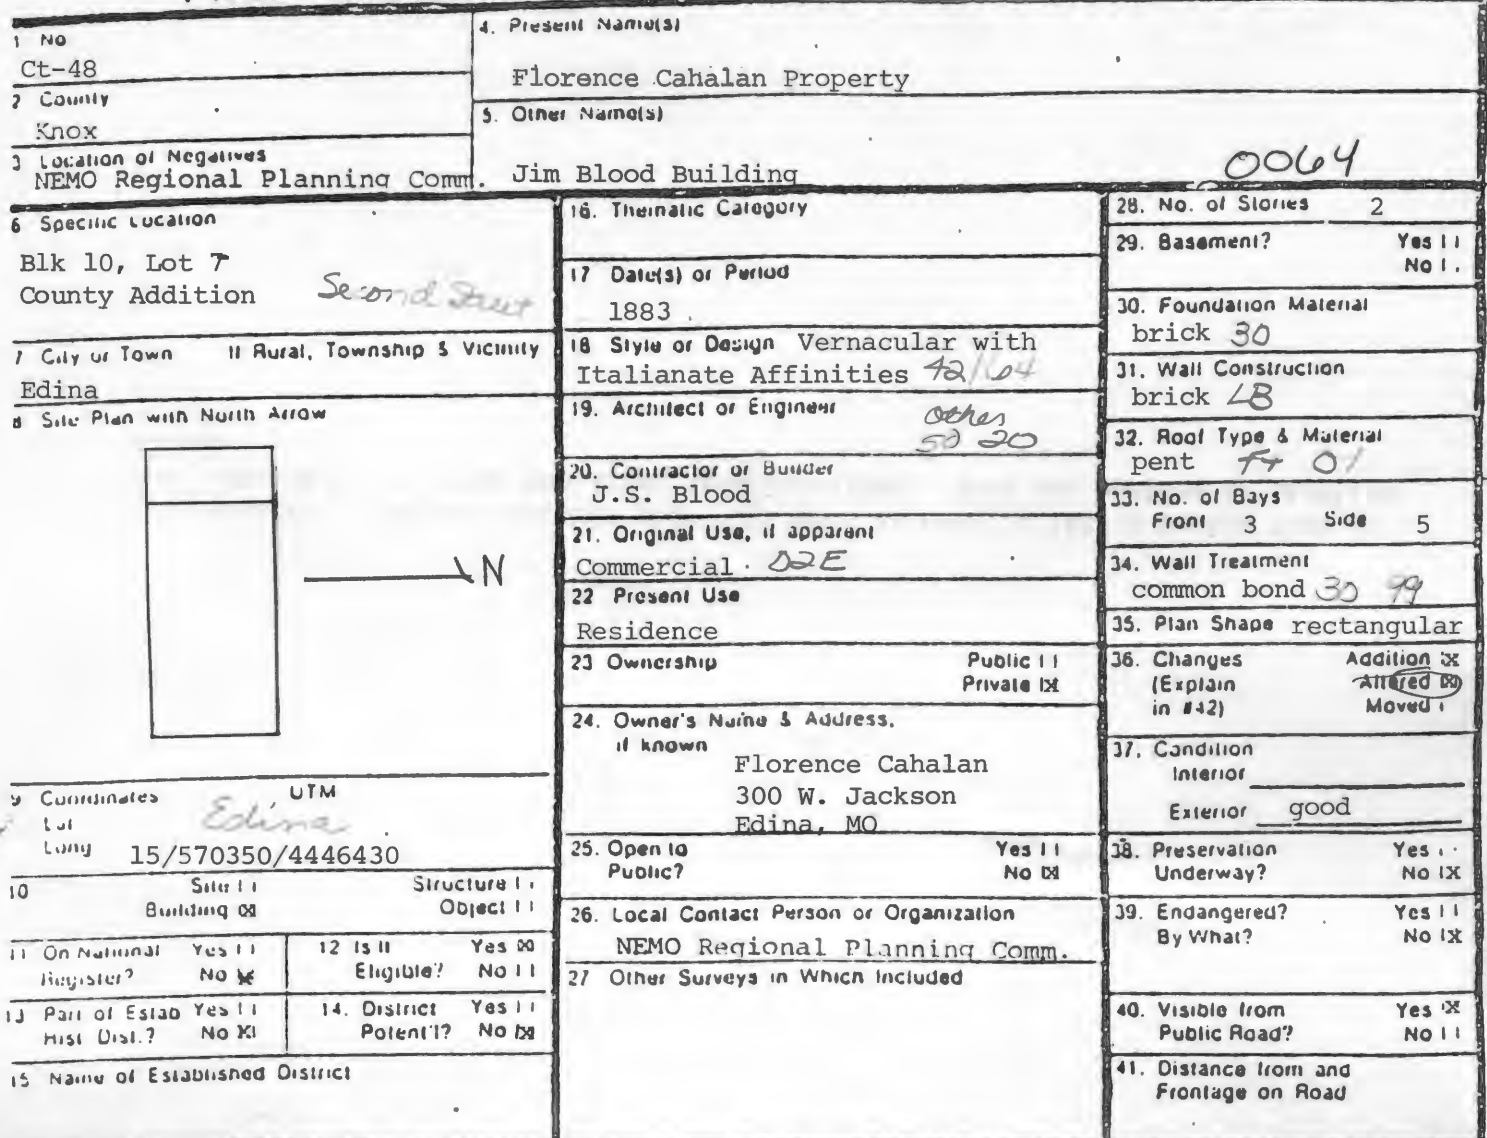 1 No
Ct-48
2 County
Knox
3 Location of Negatives
NEMO Regional Planning Comm.
4. Present Name(s)
Florence Cahalan Property
5. Other Name(s)
Jim Blood Building
0064
6 Specific Location
Blk 10, Lot 7
County Addition Second Street
7 City or Town If Rural, Township & Vicinity
Edina
8 Site Plan with North Arrow
N
9 Coordinates UTM
Lat Edina
Long 15/570350/4446430
10 Site Structure
Building ☒ Object
11 On National Yes
Register? No ☒
12 Is It Yes ☒
Eligible? No
13 Part of Estab Yes
Hist Dist.? No ☒
14. District Yes
Potent'l? No ☒
15 Name of Established District
16. Thematic Category
17 Date(s) or Period
1883
18 Style or Design Vernacular with
Italianate Affinities 42/64
19. Architect or Engineer
other
20
20. Contractor or Builder
J.S. Blood
21. Original Use, if apparent
Commercial 02E
22 Present Use
Residence
23 Ownership Public
Private ☒
24. Owner's Name & Address,
if known
Florence Cahalan
300 W. Jackson
Edina, MO
25. Open to Yes
Public? No ☒
26. Local Contact Person or Organization
NEMO Regional Planning Comm.
27 Other Surveys in Which Included
28. No. of Stories 2
29. Basement? Yes
No
30. Foundation Material
brick 30
31. Wall Construction
brick LB
32. Roof Type & Material
pent 01
33. No. of Bays
Front 3 Side 5
34. Wall Treatment
common bond 30 99
35. Plan Shape rectangular
36. Changes Addition ☒
(Explain Altered ☒
in #42) Moved
37. Condition
Interior
Exterior good
38. Preservation Yes
Underway? No ☒
39. Endangered? Yes
By What? No ☒
40. Visible from Yes ☒
Public Road? No
41. Distance from and
Frontage on Road